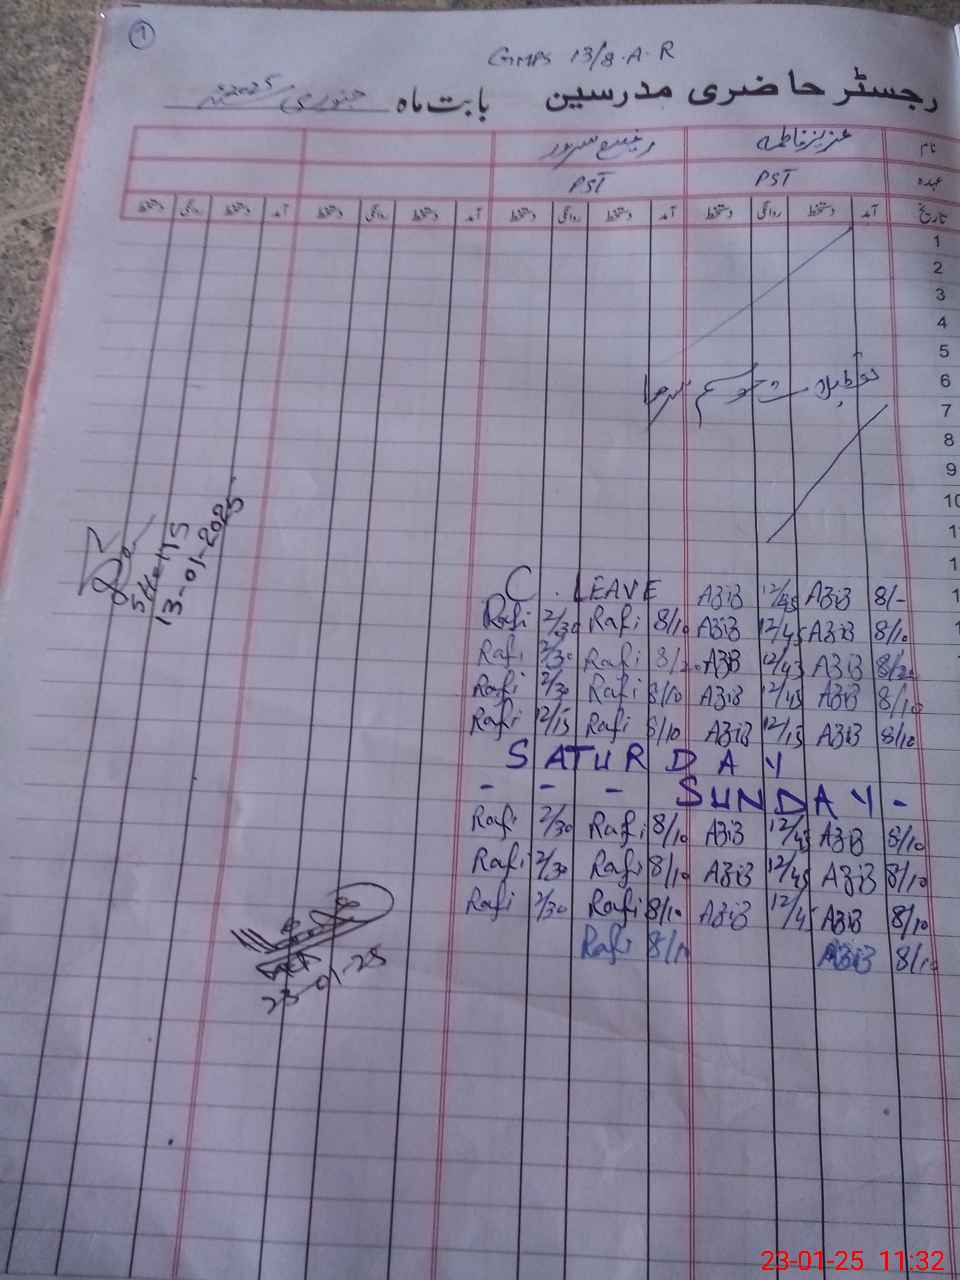 1
GMPS 13/8-A-R
رجسٹر حاضری مدرسین بابت ماہ جنوری 2025
نام عزیز فاطمہ
عہدہ PST PST
تاریخ آمد دستخط روانگی دستخط آمد دستخط روانگی دستخط آمد دستخط روانگی دستخط آمد دستخط روانگی دستخط
1
2
3
4
5
6 تعطیلات موسم سرما
7
8
9
10
11
1
C. LEAVE AZiB AZiB 8/- 1
Rafi 2/30 Rafi 8/10 AZiB 12/45 AZiB 8/10 1
Rafi 2/30 Rafi 8/20 AZB 12/45 AZiB 8/20
Rafi 2/30 Rafi 8/10 AZiB 12/45 AZiB 8/10
Rafi 12/15 Rafi 8/10 AZiB 12/15 AZiB 8/10
SATURDAY
- - - SUNDAY -
Rafi 2/30 Rafi 8/10 AZiB 12/45 AZiB 8/10
Rafi 2/30 Rafi 8/10 AZiB 12/45 AZiB 8/10
Rafi 2/30 Rafi 8/10 AZiB 12/45 AZiB 8/10
Rafi 8/10 AZiB 8/10
13-01-2025
23-01-25
23-01-25 11:32